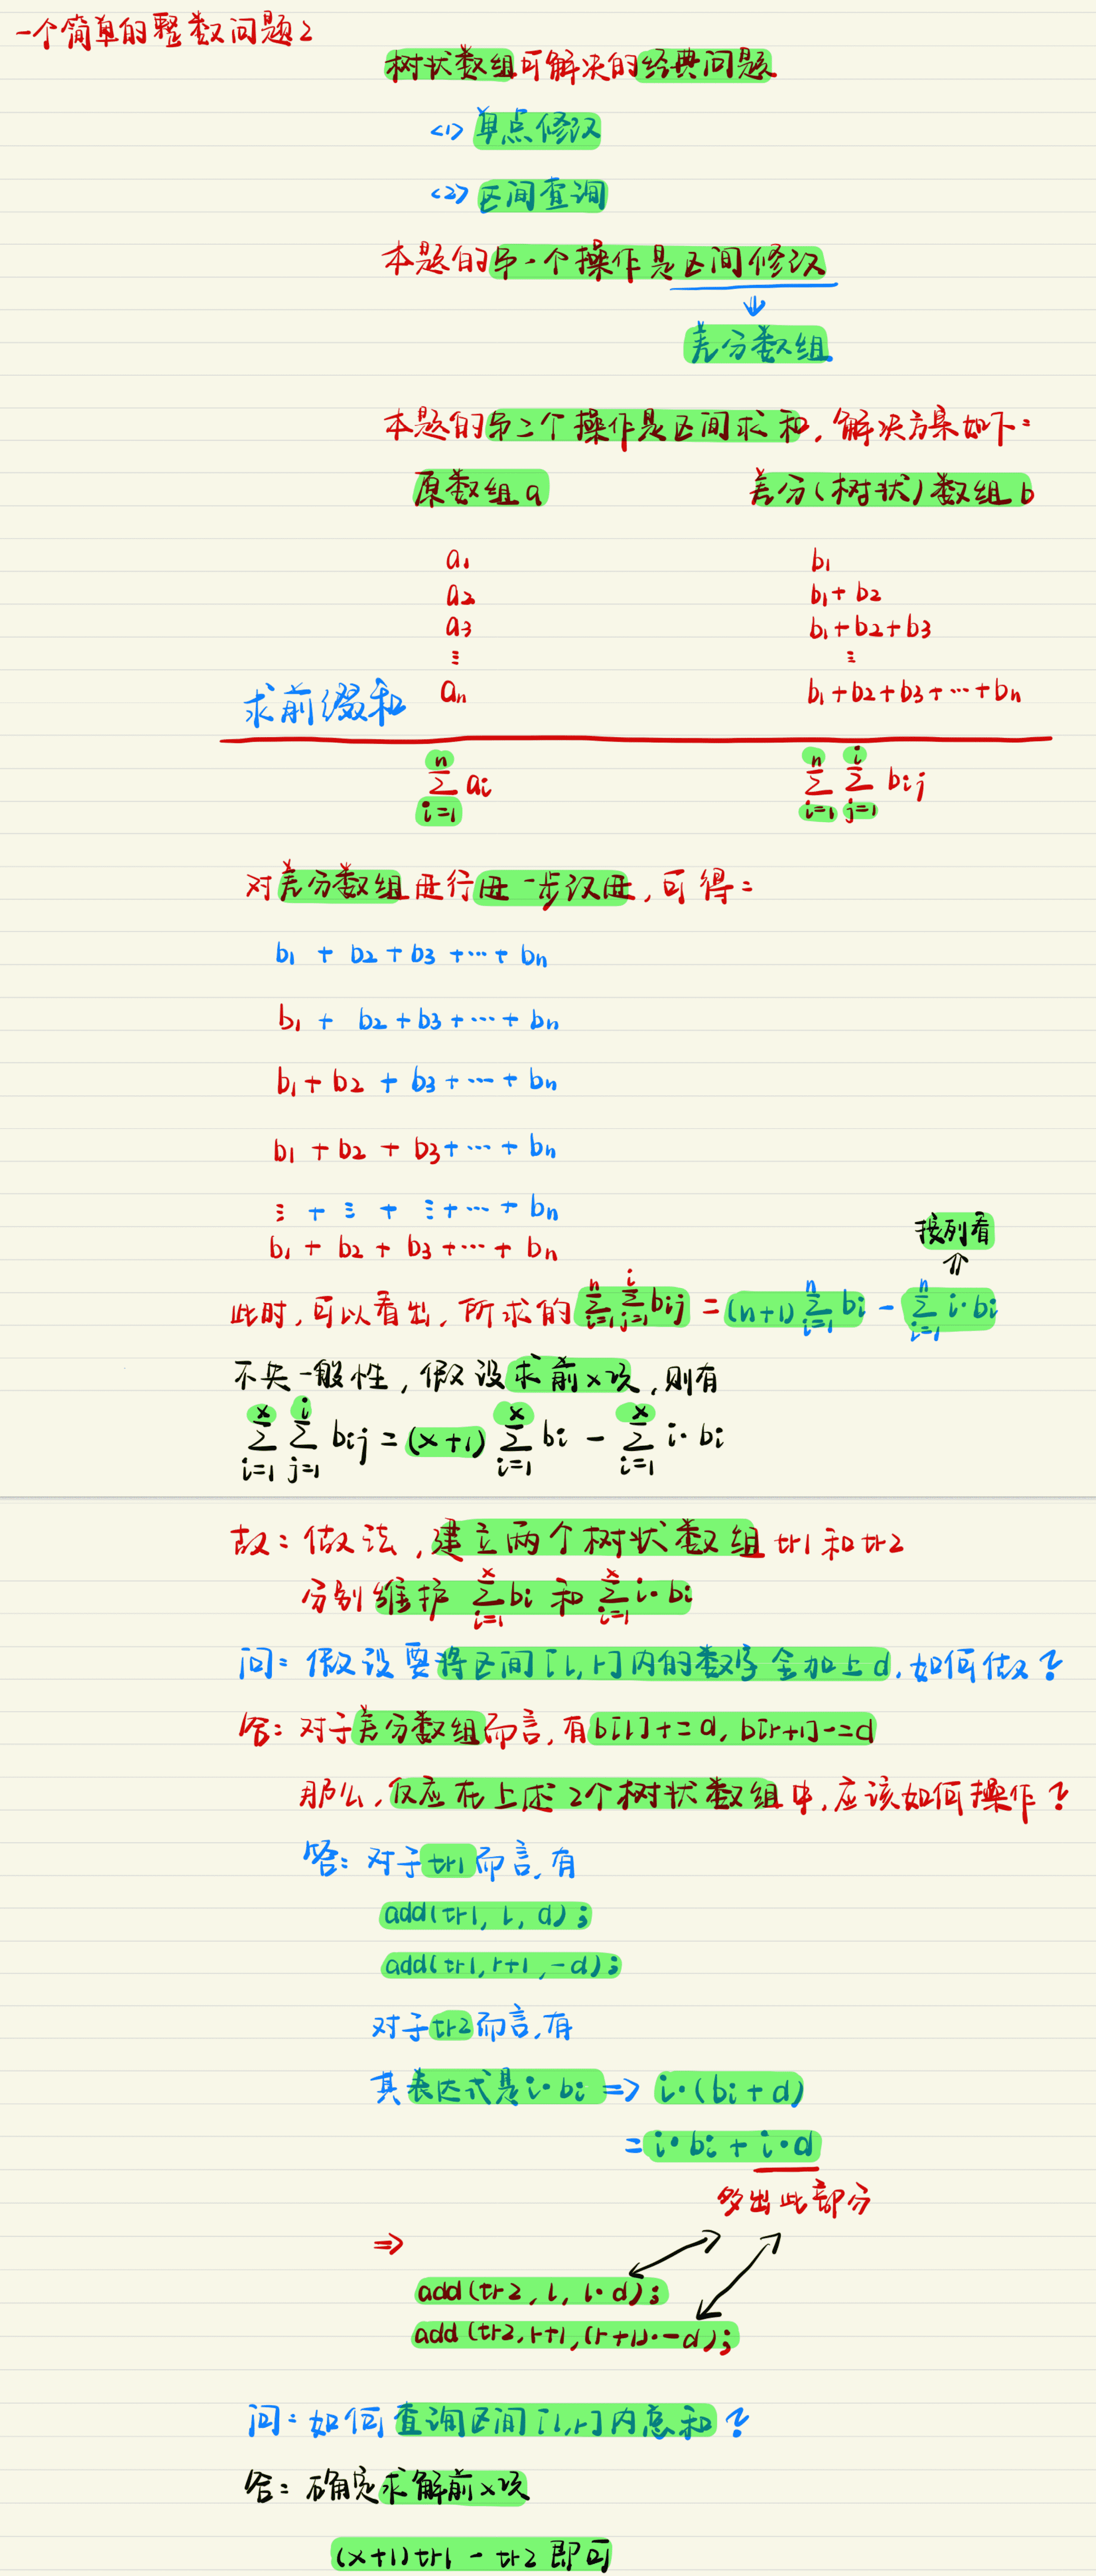 一个简单的整数问题2
树状数组可解决的经典问题
<1> 单点修改
<2> 区间查询
本题的另一个操作是区间修改
↓
差分数组
本题的另二个操作是区间求和，解决方案如下：
原数组a 差分(树状)数组b
a1 b1
a2 b1+b2
a3 b1+b2+b3
⋮ ⋮
an b1+b2+b3+…+bn
求前缀和
n n i
Σ ai Σ Σ bij
i=1 i=1 j=1
对差分数组进行进一步改进，可得：
b1 + b2 + b3 + … + bn
b1 + b2 + b3 + … + bn
b1 + b2 + b3 + … + bn
b1 + b2 + b3 + … + bn
⋮ + ⋮ + ⋮ + … + bn
b1 + b2 + b3 + … + bn
按列看
⇑
此时，可以看出，所求的 Σ(i=1,n) Σ(j=1,i) bij = (n+1) Σ(i=1,n) bi - Σ(i=1,n) i·bi
不失一般性，假设求前x项，则有
Σ(i=1,x) Σ(j=1,i) bij = (x+1) Σ(i=1,x) bi - Σ(i=1,x) i·bi
故：做法，建立两个树状数组tr1和tr2
分别维护 Σ(i=1,x) bi 和 Σ(i=1,x) i·bi
问：假设要将区间[l,r]内的数字全加上d，如何做？
答：对于差分数组而言，有b[l]+=d, b[r+1]-=d
那么，反应在上述2个树状数组中，应该如何操作？
答：对于tr1而言，有
add(tr1, l, d);
add(tr1, r+1, -d);
对于tr2而言，有
其表达式是i·bi => i·(bi+d)
= i·bi + i·d
多出此部分
⇒
add(tr2, l, l·d);
add(tr2, r+1, (r+1)·-d);
问：如何查询区间[l,r]内总和？
答：确定求解前x项
(x+1)tr1 - tr2 即可